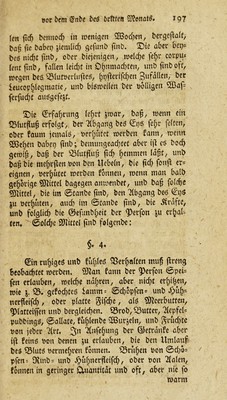 vor dem Ende des dritten Monats. 197
len sich dennoch in wenigen Wochen, dergestalt,
daß sie dabey ziemlich gesund sind. Die aber bey-
des nicht sind, oder diejenigen, welche sehr corpu-
lent sind, fallen leicht in Ohnmachten, und sind oft,
wegen des Blutverlustes, hysterischen Zufällen, der
Leucophlegmatie, und bisweilen der völligen Was-
sersucht ausgesetzt.
Die Erfahrung lehret zwar, daß, wenn ein
Blutfluß erfolgt, der Abgang des Eys sehr selten,
oder kaum jemals, verhütet werden kann, wenn
Wehen dabey sind; demungeachtet aber ist es doch
gewiß, daß der Blutfluß sich hemmen läßt, und
daß die mehresten von den Uebeln, die sich sonst er-
eignen, verhütet werden können, wenn man bald
gehörige Mittel dagegen anwendet, und daß solche
Mittel, die im Stande sind, den Abgang des Eys
zu verhüten, auch im Stande sind, die Kräfte,
und folglich die Gesundheit der Person zu erhal-
ten. Solche Mittel sind folgende:
§. 4.
Ein ruhiges und kühles Verhalten muß streng
beobachtet werden. Man kann der Person Spei-
sen erlauben, welche nähren, aber nicht erhitzen,
wie z. B. gekochtes Lamm- Schöpsen- und Hüh-
nerfleisch, oder platte Fische, als Meerbutten,
Platteissen und dergleichen. Brod, Butter, Aepfel-
puddings, Sallate, kühlende Wurzeln, und Früchte
von jeder Art. In Ansehung der Getränke aber
ist keins von denen zu erlauben, die den Umlauf
des Bluts vermehren können. Brühen von Schö-
psen- Rind- und Hühnerfleisch, oder von Kalen,
können in geringer Quantität und oft, aber nie so
warm